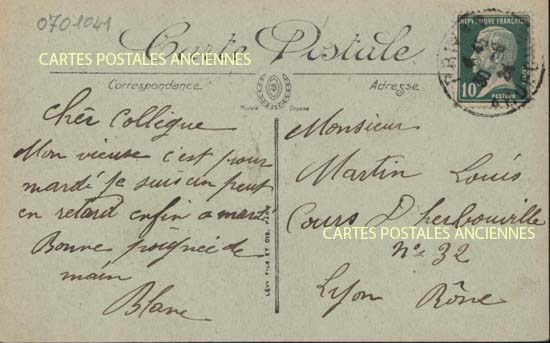 0701041
CARTES POSTALES ANCIENNES
Carte Postale
Correspondance
Adresse
Modèle Déposé
REPUBLIQUE FRANÇAISE
10
PASTEUR
Chèr Collègue
Mon vieuse c'est pour
mardé Je suis un peut
en retard enfin a mardi
Bonne poignée de
main
Blanc
LÉVY FILS ET CIE, PARIS
Monsieur
Martin Louis
Cours D'herbouville
CARTES POSTALES ANCIENNES
N° 32
Lyon Rône